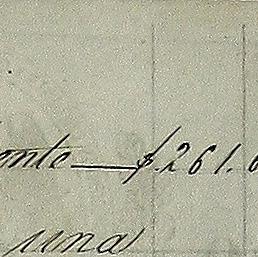 onto — $.261.6
una